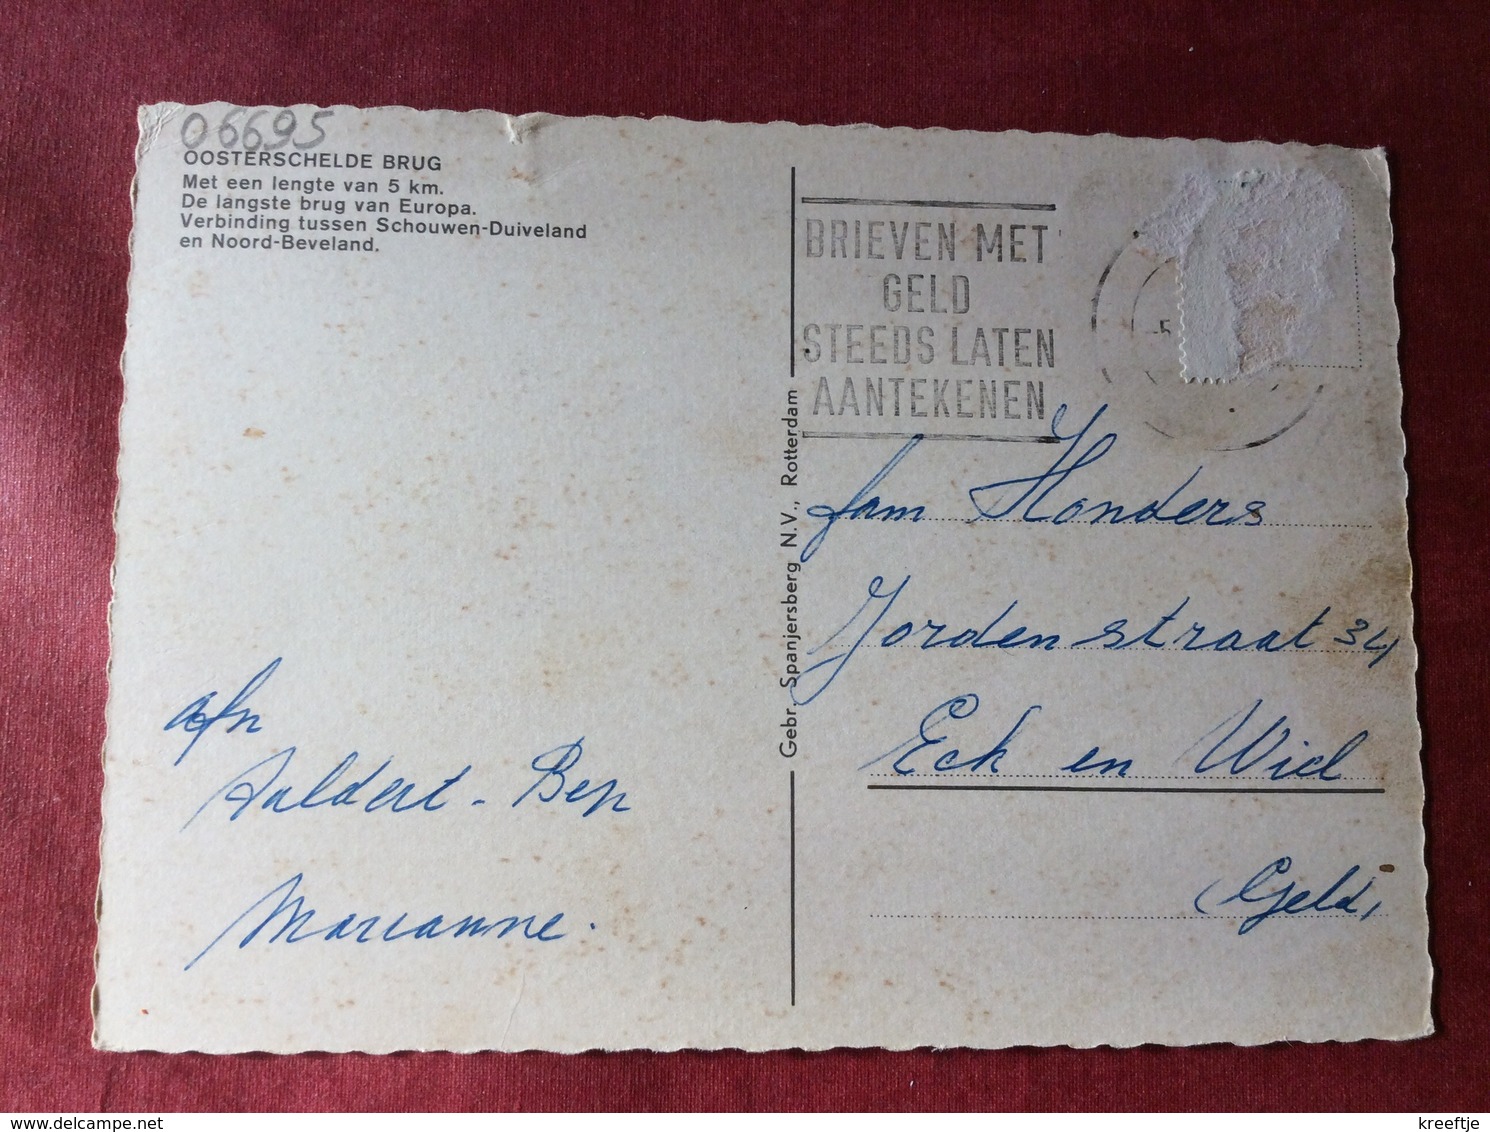 06695
OOSTERSCHELDE BRUG
Met een lengte van 5 km.
De langste brug van Europa.
Verbinding tussen Schouwen-Duiveland
en Noord-Beveland.
afn
Aaldert - Bep
Marianne.
Gebr. Spanjersberg N.V., Rotterdam
BRIEVEN MET
GELD
STEEDS LATEN
AANTEKENEN
-5
fam Honders
Jordenstraat 34
Eck en Wiel
(Geld,
© www.delcampe.net
kreeftje